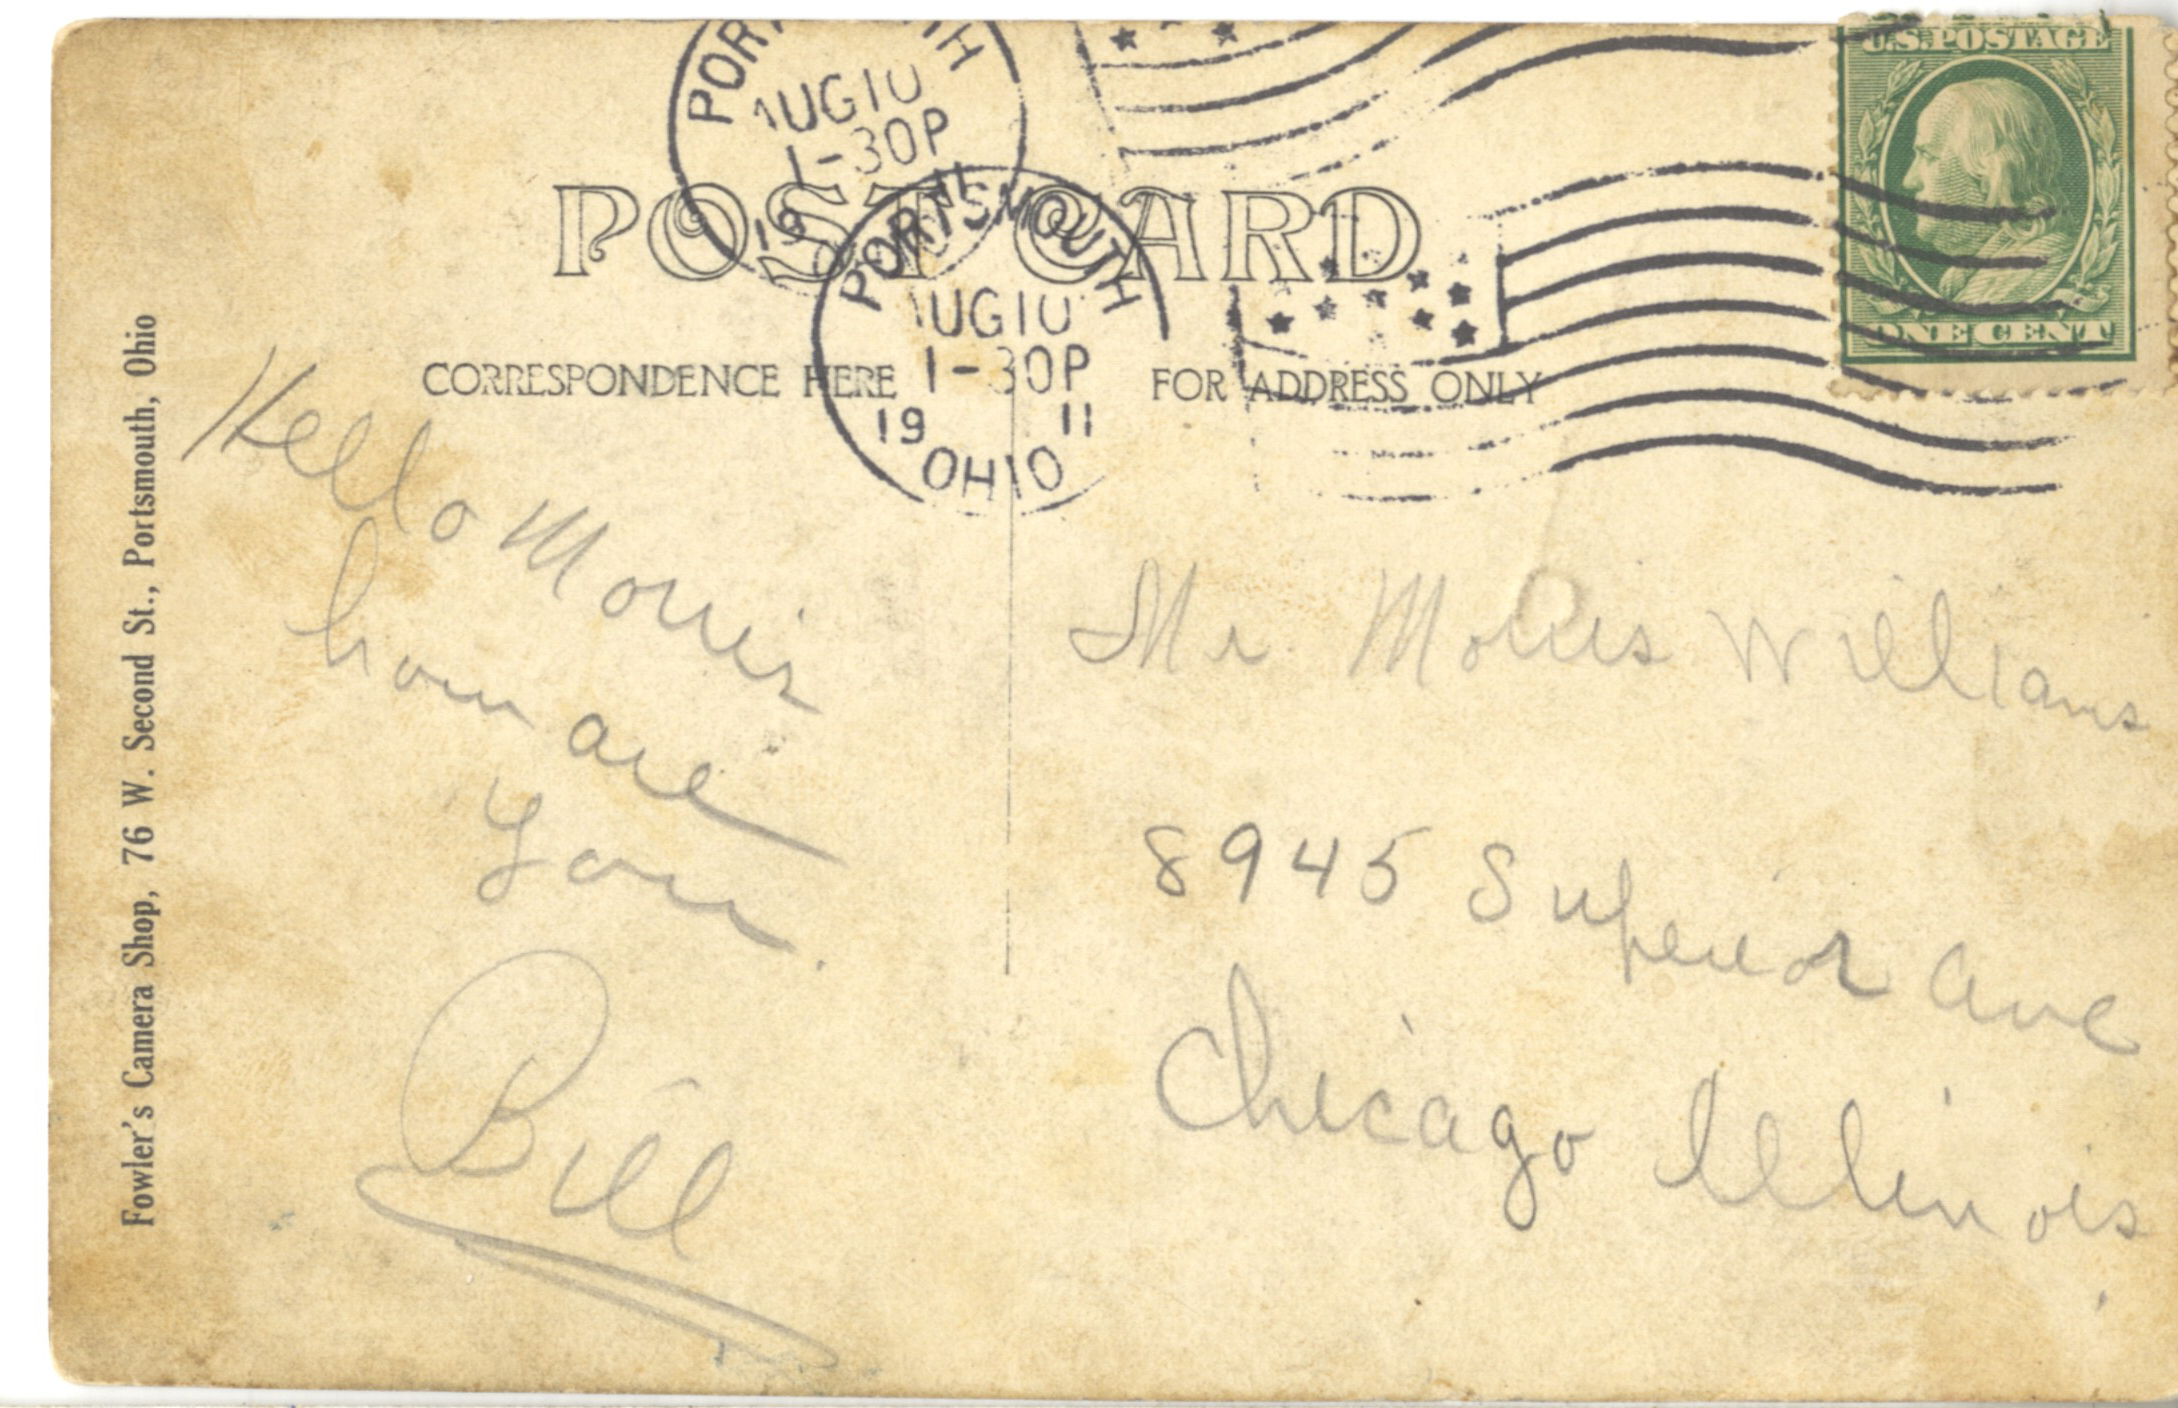 PORTSMOUTH
AUG 10
1-30P
19 11
U.S. POSTAGE
ONE CENT
POST CARD
PORTSMOUTH
AUG 10
1-30P
19 11
OHIO
CORRESPONDENCE HERE
FOR ADDRESS ONLY
Fowler's Camera Shop, 76 W. Second St., Portsmouth, Ohio
Hello Morris
how are
you.
Bill
Mr Morris Williams
8945 Superior Ave
Chicago Illinois